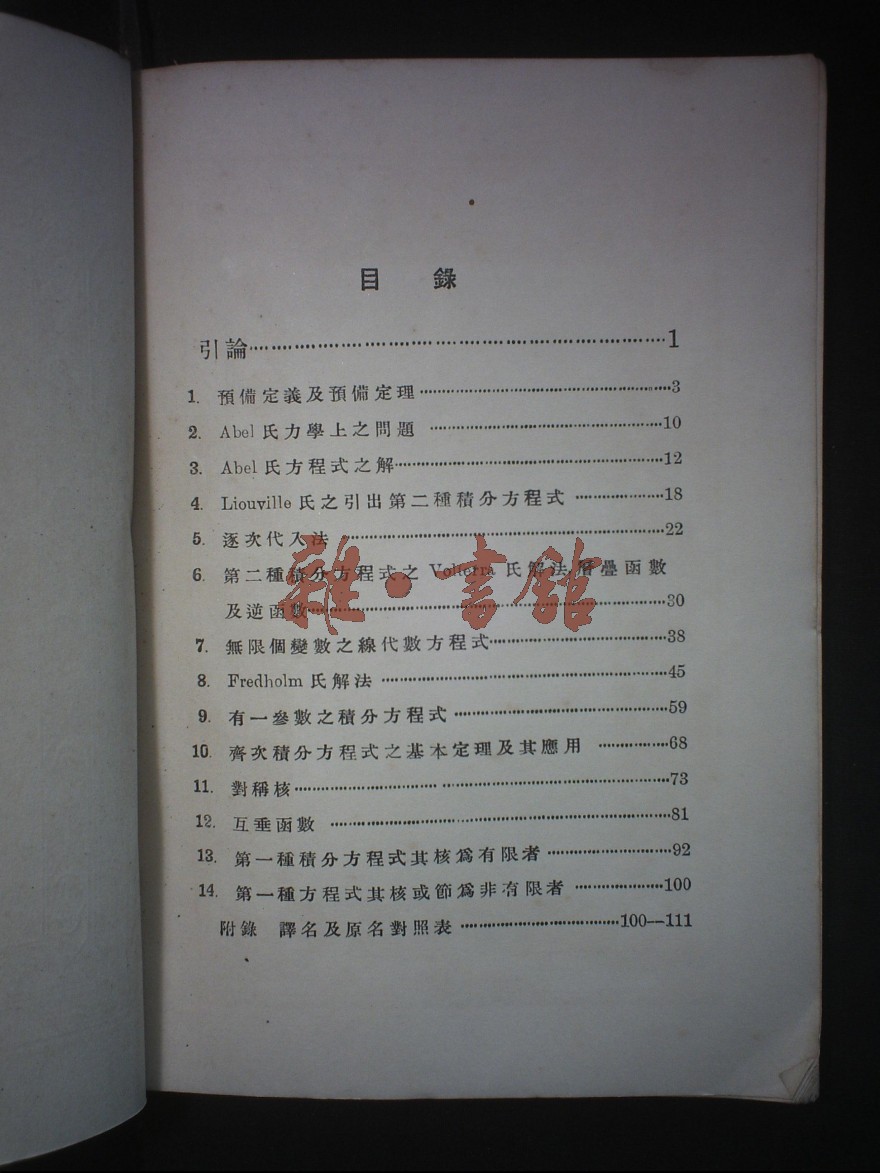 目 錄
引論……1
1. 預備定義及預備定理……3
2. Abel 氏力學上之問題……10
3. Abel 氏方程式之解……12
4. Liouville 氏之引出第二種積分方程式……18
5. 逐次代入法……22
6. 第二種積分方程式之 Volterra 氏解法層疊函數
及逆函數……30
7. 無限個變數之線代數方程式……38
8. Fredholm 氏解法……45
9. 有一參數之積分方程式……59
10. 齊次積分方程式之基本定理及其應用……68
11. 對稱核……73
12. 互垂函數……81
13. 第一種積分方程式其核爲有限者……92
14. 第一種方程式其核或節爲非有限者……100
附錄 譯名及原名對照表……100—111
雜·書館